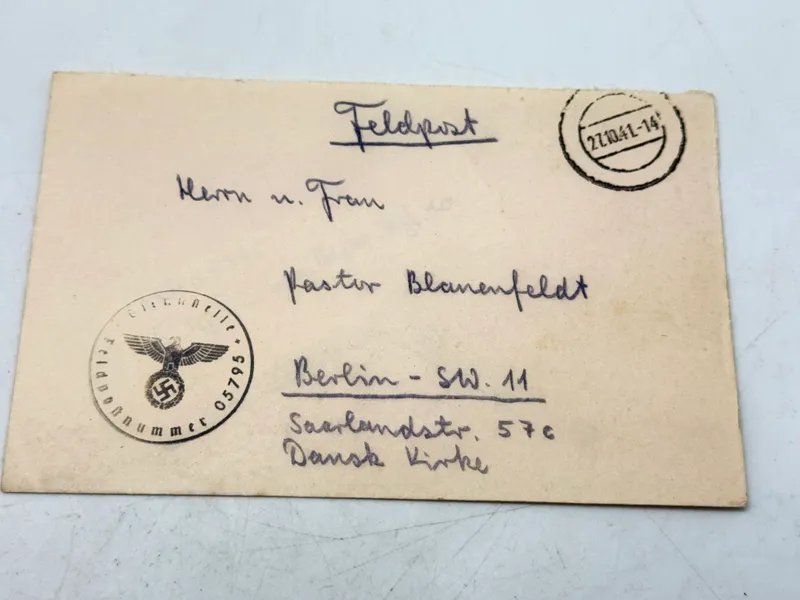 Feldpost
27.10.41.-14
Herrn u. Frau
Pastor Blauenfeldt
Berlin - SW. 11
Saarlandstr. 57c
Dansk Kirke
Dienststelle
Feldpostnummer 05795